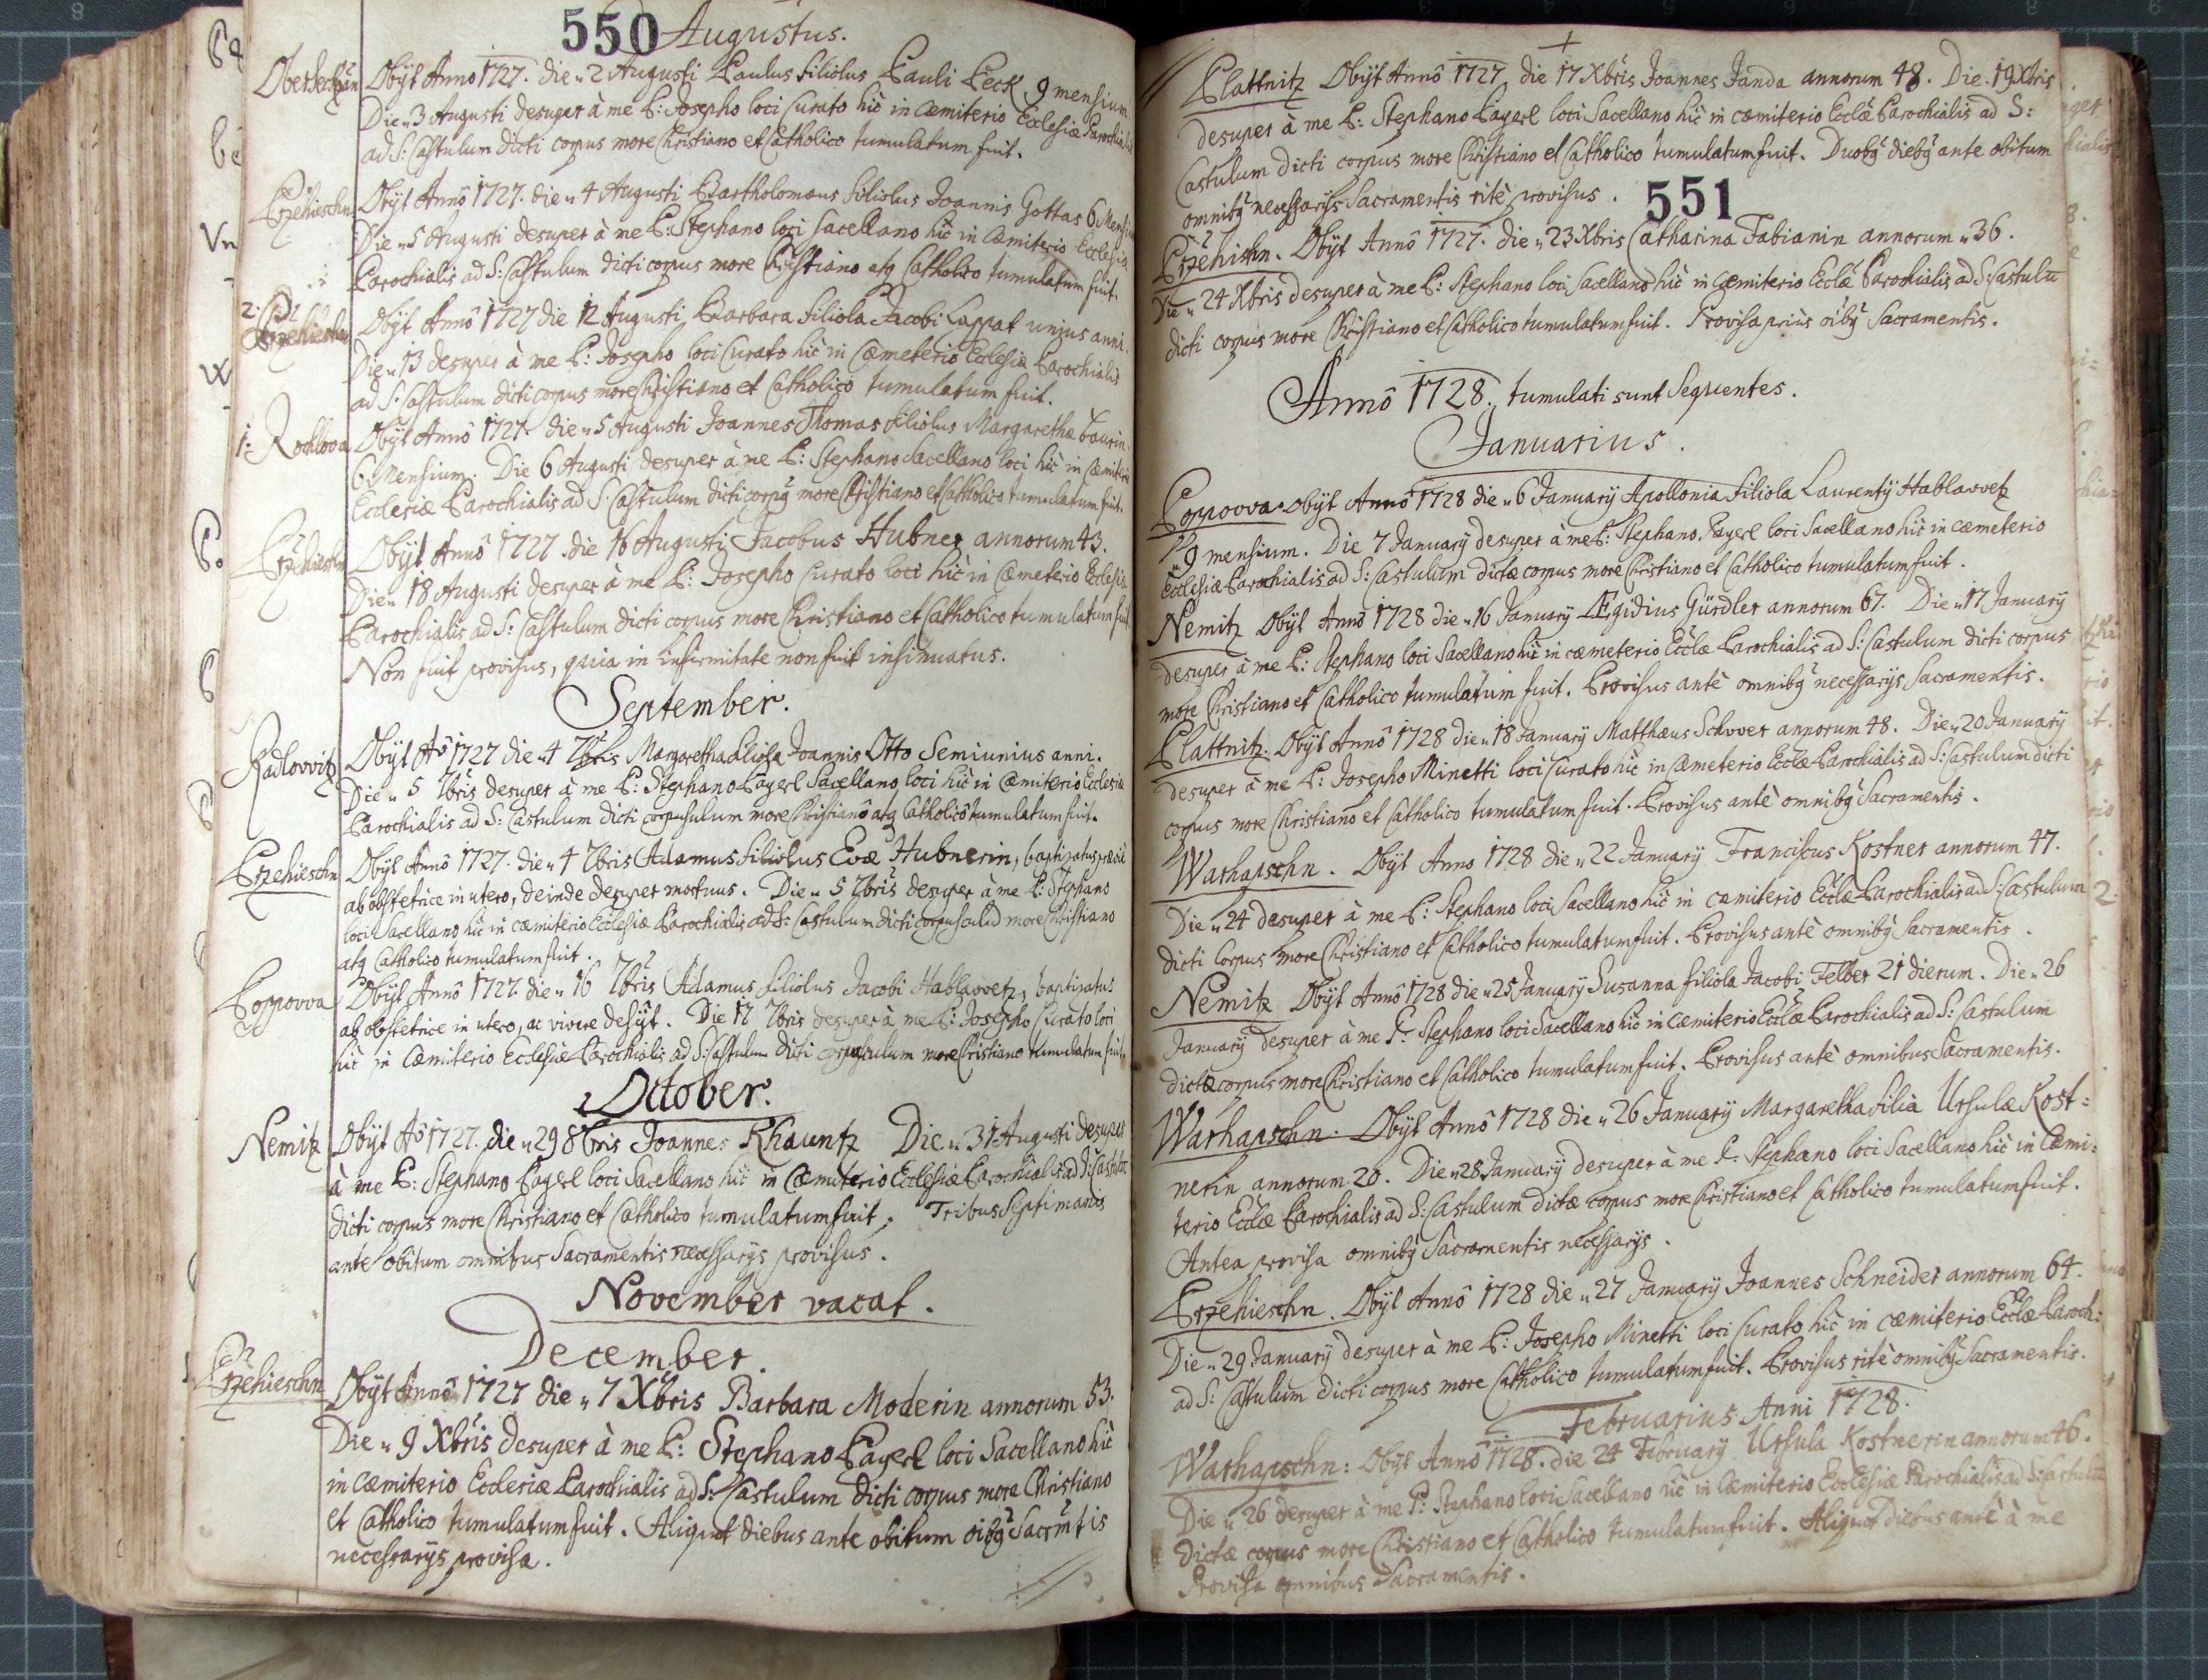 550 Augustus.
Obersekyran Obÿt Anno 1727. die „ 2 Augusti Paulus filiolus Pauli Peck 9 mensium
Die „ 3 Augusti desuper à me P: Josepho loci Curato hìc in Cæmiterio Ecclesiæ Parochialis
ad S: Castulum dicti corpus more Christiano et Catholico tumulatum fuit.
Przehieschn Obÿt Annô 1727. die „ 4 Augusti Bartholomæus filiolus Joannis Gottas 6 Mensium
Die „ 5 Augusti desuper à me P: Stephano loci Sacellano hìc in Cæmiterio Ecclesiæ
Parochialis ad S: Castulum dicti corpus more Christiano atq Catholico tumulatum fuit.
2: Przehieschn Obÿt Annô 1727 die 12 Augusti Barbara filiola Jacobi Lappat unius anni.
Die „ 13 desuper à me P: Josepho loci Curato hìc in Cæmeterio Ecclesiæ Parochialis
ad S: Castulum dicti corpus more Christiano et Catholico tumulatum fuit.
1: Rochlova Obÿt Annô 1727. die „ 5 Augusti Joannes Thomas filiolus Margarethæ
6 Mensium. Die 6 Augusti desuper à me P: Stephano Sacellano loci hìc in Cæmiterio
Ecclesiæ Parochialis ad S: Castulum dicti corpq more Christiano et Catholico tumulatum fuit.
Przehieschn Obÿt Annô 1727. die 16 Augusti Jacobus Hubner annorum 43.
Die „ 18 Augusti desuper à me P: Josepho Curato loci hìc in Cæmeterio Ecclesiæ
Parochialis ad S: Castulum dicti corpus more Christiano et Catholico tumulatum fuit.
Non fuit provisus, quia in infirmitate non fuit insinuatus.
September.
Radlovvitz Obÿt Aô 1727 die „ 4 7bris Margaretha filiola Joannis Otto Semiunius anni.
Die „ 5 7bris desuper à me P: Stephano Pagerl Sacellano loci hìc in Cæmiterio Ecclesiæ
Parochialis ad S: Castulum dicti corpusulum more Christianô atq Catholicô tumulatum fuit.
Przehieschn Obÿt Annô 1727. die „ 4 7bris Adamus filiolus Evæ Hubnerin, baptizatus
ab obstetrice in utero, deinde desuper mortuus. Die „ 5 7bris desuper à me P: Stephano
loci Sacellano hìc in cæmiterio Ecclesiæ Parochialis ad S: Castulum dicti corpusculũ more Christiano
atq Catholico tumulatum fuit.
Poppovva Obÿt Annô 1727. die „ 16 7bris Adamus filiolus Jacobi Hablavvetz, baptizatus
ab obstetrice in utero, ac vivere desÿt. Die 17 7bris desuper à me P: Josepho Curato loci
hìc in Cæmiterio Ecclesiæ Parochialis ad S: Castulum dicti corpusculum more Christiano tumulatum fuit.
October.
Nemitz Obÿt Aô 1727. die „ 29 8bris Joannes Khauntz Die „ 31 Augusti desuper
à me P: Stephano Pagerl loci Sacellano hìc in Cæmiterio Ecclesiæ Parochialis ad S: Castulũ
dicti corpus more Christiano et Catholico tumulatum fuit; Tribus Septimanis
ante obitum omnibus Sacramentis necessarÿs provisus.
November vacat.
December.
Przehieschn Obÿt Annô 1727 die „ 7 Xbris Barbara Moderin annorum 53.
Die „ 9 Xbris desuper à me P: Stephano Pagerl loci Sacellano hìc
in Cæmiterio Ecclesiæ Parochialis ad S: Castulum dicti corpus more Christiano
et Catholico tumulatum fuit. Aliquot diebus ante obitum oibq Sacrmtis
necessarÿs provisa.
Plattnitz Obÿt Annô 1727. die 17. Xbris Joannes Janda annorum 48. Die. 19 Xbris
desuper à me P: Stephano Pagerl loci Sacellano hìc in cæmiterio Ecclæ Parochialis ad S:
Castulum dicti corpus more Christiano et Catholico tumulatum fuit. Duobq diebq ante obitum
omnibq necessarÿs Sacramentis ritè provisus. 551
Przehischn. Obÿt Annô 1727. die „ 23 Xbris Catharina Fabianin annorum „ 36.
Die „ 24 Xbris desuper à me P: Stephano loci Sacellano hìc in Cæmiterio Ecclæ Parochialis ad S: Castulũ
dicti corpus more Christiano et Catholico tumulatum fuit. Provisa priùs oibq Sacramentis.
Annô 1728. tumulati sunt Sequentes.
Januarius.
Poppovva. Obÿt Annô 1728 die „ 6 Januarÿ Apollonia filiola Laurentÿ Hablavvetz
„ 9 mensium. Die 7 Januarÿ desuper à me P: Stephano Pagerl loci Sacellano hìc in cæmeterio
Ecclesiæ Parochialis ad S: Castulum dictæ corpus more Christiano et Catholico tumulatum fuit.
Nemitz Obÿt Annô 1728 die „ 16 Januarÿ Ægidius Gürdler annorum 67. Die „ 17 Januarÿ
desuper à me P: Stephano loci Sacellano hìc in cæmeterio Ecclæ Parochialis ad S: Castulum dicti corpus
more Christiano et Catholico tumulatum fuit. Provisus antè omnibq necessarÿs Sacramentis.
Plattnitz. Obÿt Annô 1728 die „ 18 Januarÿ Matthæus Schwer annorum 48. Die „ 20 Januarÿ
desuper à me P: Josepho Minetti loci Curato hìc in Cæmeterio Ecclæ Parochialis ad S: Castulum dicti
corpus more Christiano et Catholico tumulatum fuit. Provisus antè omnibq Sacramentis.
Warhapschn. Obÿt Anno 1728 die „ 22 Januarÿ Franciscus Kostner annorum 47.
Die „ 24 desuper à me P: Stephano loci Sacellano hìc in cæmiterio Ecclæ Parochialis ad S: Castulum
dicti corpus more Christiano et Catholico tumulatum fuit. Provisus antè omnibq Sacramentis.
Nemitz Obÿt Annô 1728 die „ 25 Januarÿ Susanna filiola Jacobi Felber 21 dierum. Die „ 26
Januarÿ desuper à me P: Stephano loci Sacellano hìc in Cæmiterio Ecclæ Parochialis ad S: Castulum
dictæ corpus more Christiano et Catholico tumulatum fuit. Provisus antè omnibus Sacramentis.
Warhapschn. Obÿt Annô 1728 die „ 26 Januarÿ Margaretha filia Ursulæ Kost=
nerin annorum 20. Die „ 28 Januarÿ desuper à me P: Stephano loci Sacellano hìc in Cæmi=
terio Ecclæ Parochialis ad S: Castulum dictæ corpus more Christiano et Catholico tumulatum fuit.
Antea provisa omnibq Sacramentis necessarÿs.
Przehieschn. Obÿt Annô 1728 die „ 27 Januarÿ Joannes Schneider annorum 64.
Die „ 29 Januarÿ desuper à me P: Josepho Minetti loci Curato hìc in cæmiterio Ecclæ Paroch:
ad S: Castulum dicti corpus more Catholico tumulatum fuit. Provisus ritè omnibq Sacramentis.
Februarius Anni 1728.
Warhapschn: Obÿt Annô 1728. die 24 Februarÿ Ursula Kostnerin annorum 46.
Die „ 26 desuper à me P: Stephano loci Sacellano hìc in Cæmiterio Ecclesiæ Parochialis ad S: Castulũ
dictæ corpus more Christiano et Catholico tumulatum fuit. Aliquot diebus antè à me
Provisa omnibus Sacramentis.